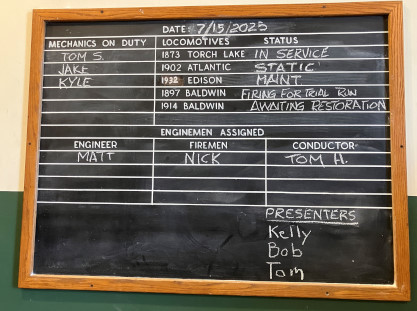 DATE: 7/15/2023
MECHANICS ON DUTY LOCOMOTIVES STATUS
TOM S. 1873 TORCH LAKE IN SERVICE
JAKE 1902 ATLANTIC STATIC
KYLE 1932 EDISON MAINT
1897 BALDWIN FIRING FOR TRIAL RUN
1914 BALDWIN AWAITING RESTORATION
ENGINEMEN ASSIGNED
ENGINEER FIREMEN CONDUCTOR
MATT NICK TOM H.
PRESENTERS
Kelly
Bob
Tom